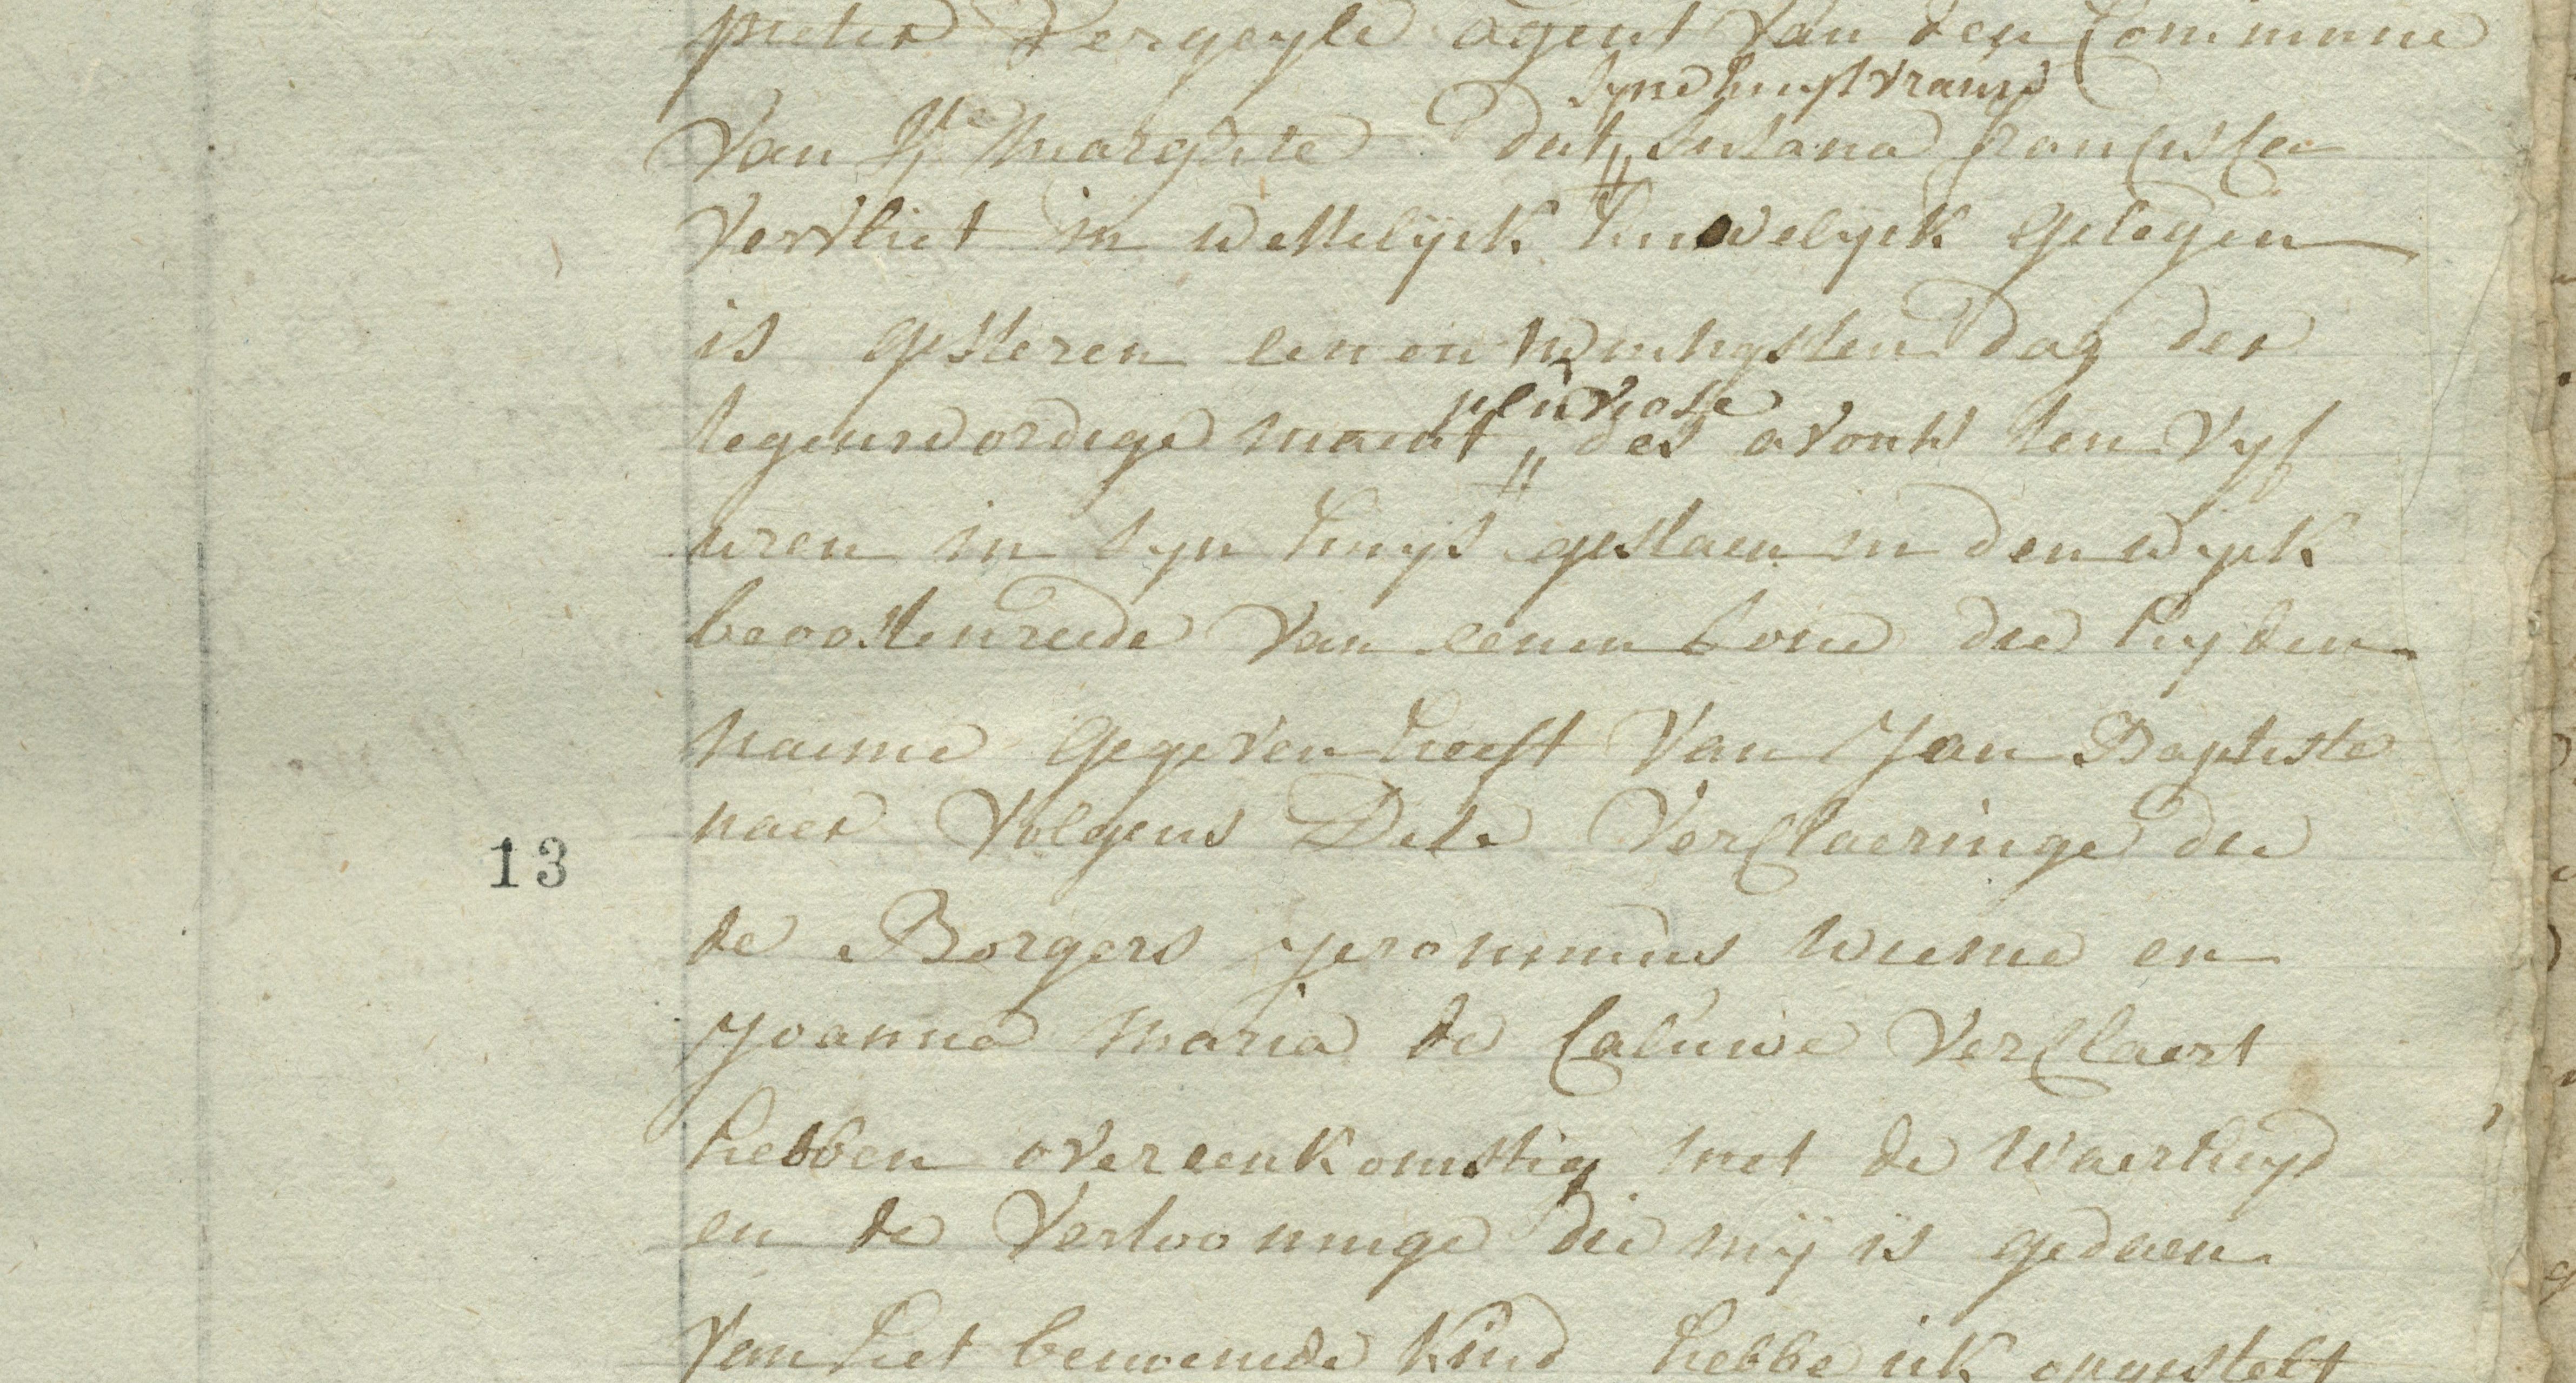 pieter Vergeyle agent van den Commune
syne huysvrauw
van Ste Margriete dat Susana francisca
Vervliet in wettelyck huwelyck gelegen
is gisteren een en twintighsten dag der
pluviose
tegenwordige maent des avonts ten vyf
uren in syn huys gestaen in den wyck
beoostenreede van eenen sone die hy den
naeme gegeven heeft van Jan Baptiste
naer volgens dese verclaeringe die
13
de Borgers jeronimus Wieme en
Joanna Maria de Caluwe verclaert
hebben overeenkomstig met de waerheyd
en de vertooninge die mij is gedaen
van het benoemde kind hebbe ick opgestelt